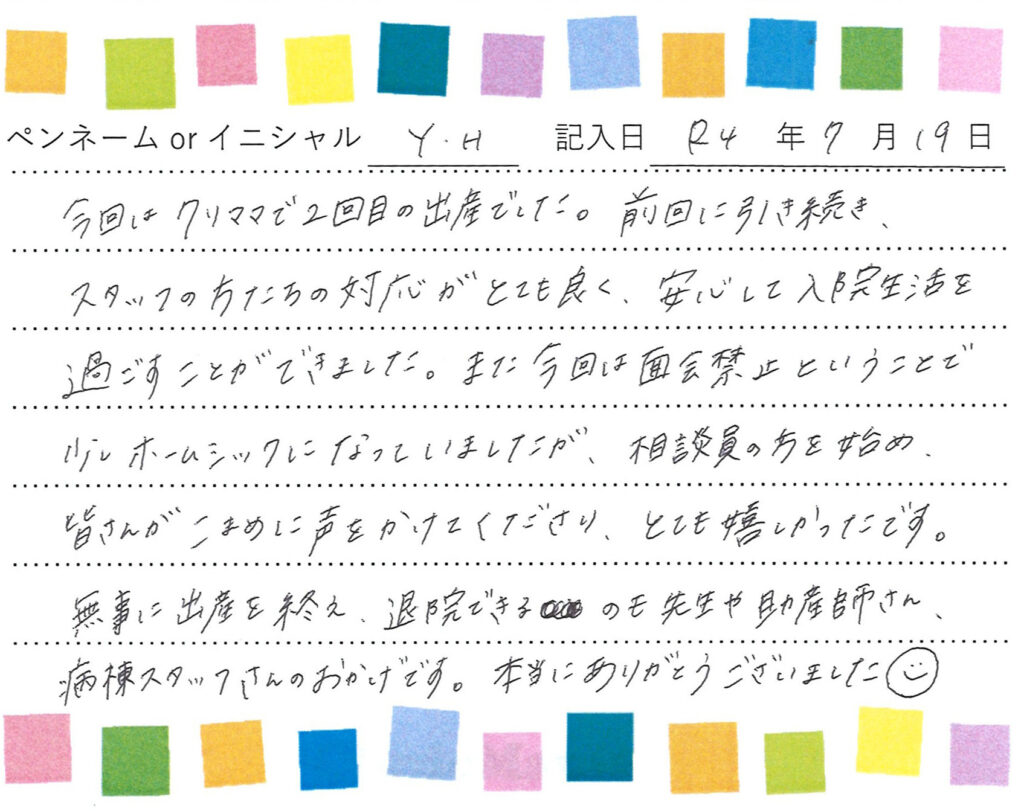 ペンネーム or イニシャル Y.H 記入日 R4 年 7 月 19 日
今回はクリママで2回目の出産でした。前回に引き続き、
スタッフの方たちの対応がとても良く、安心して入院生活を
過ごすことができました。また今回は面会禁止ということで
少しホームシックになっていましたが、相談員の方を始め、
皆さんがこまめに声をかけてくださり、とても嬉しかったです。
無事に出産を終え、退院できるのも先生や助産師さん、
病棟スタッフさんのおかげです。本当にありがとうございました